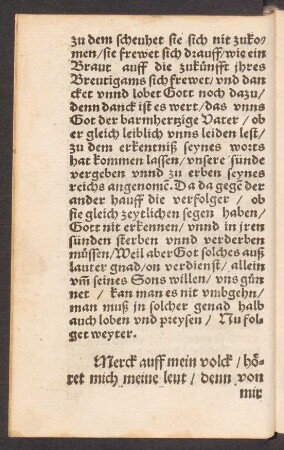 zu dem scheuhet sie sich nit zuko-
men/sie frewet sich drauff/wie ein
Braut auff die zukünfft jhres
Breutigams sich frewet/vnd dan
cket vnnd lobet Gott noch dazu/
denn danck ist es wert/das vnns
Got der barmhertzige Vater/ob
er gleich leiblich vnns leiden lest/
zu dem erkentniß seynes worts
hat kommen lassen/vnsere sünde
vergeben vnnd zu erben seynes
reichs angenomē. Da da gegē der
ander hauff die verfolger/ob
sie gleich zeytlichen segen haben/
Gott nit erkennen/vnnd in jren
sünden sterben vnnd verderben
müssen/Weil aber Got solches auß
lauter gnad/on verdienst/allein
vm̃ seines Sons willen/vns gün
net/kan man es nit vmbgehn/
man muß in solcher genad halb
auch loben vnd preysen/Nu fol-
get weyter.
Merck auff mein volck/hö-
ret mich meine leut/denn von
mir